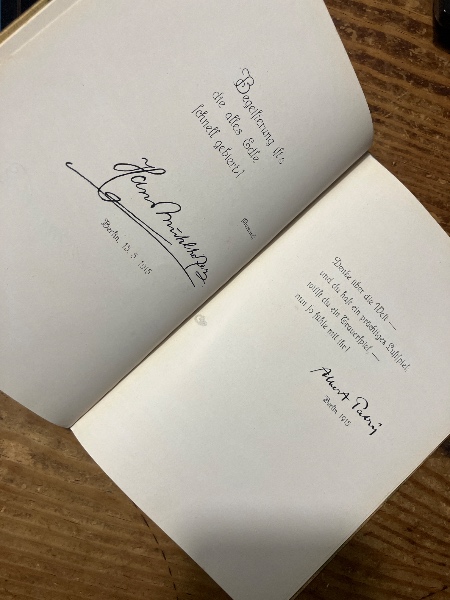 Begeisterung ist's
die alles Edle
schnell gebiert!
Hans Mühlhofer
Berlin, 13. 9. 1915
Denke über die Welt —
und du hast ein prächtiges Lustspiel
willst du ein Trauerspiel, —
nun so fühle mit ihr!
Albert Patry
Berlin 1915